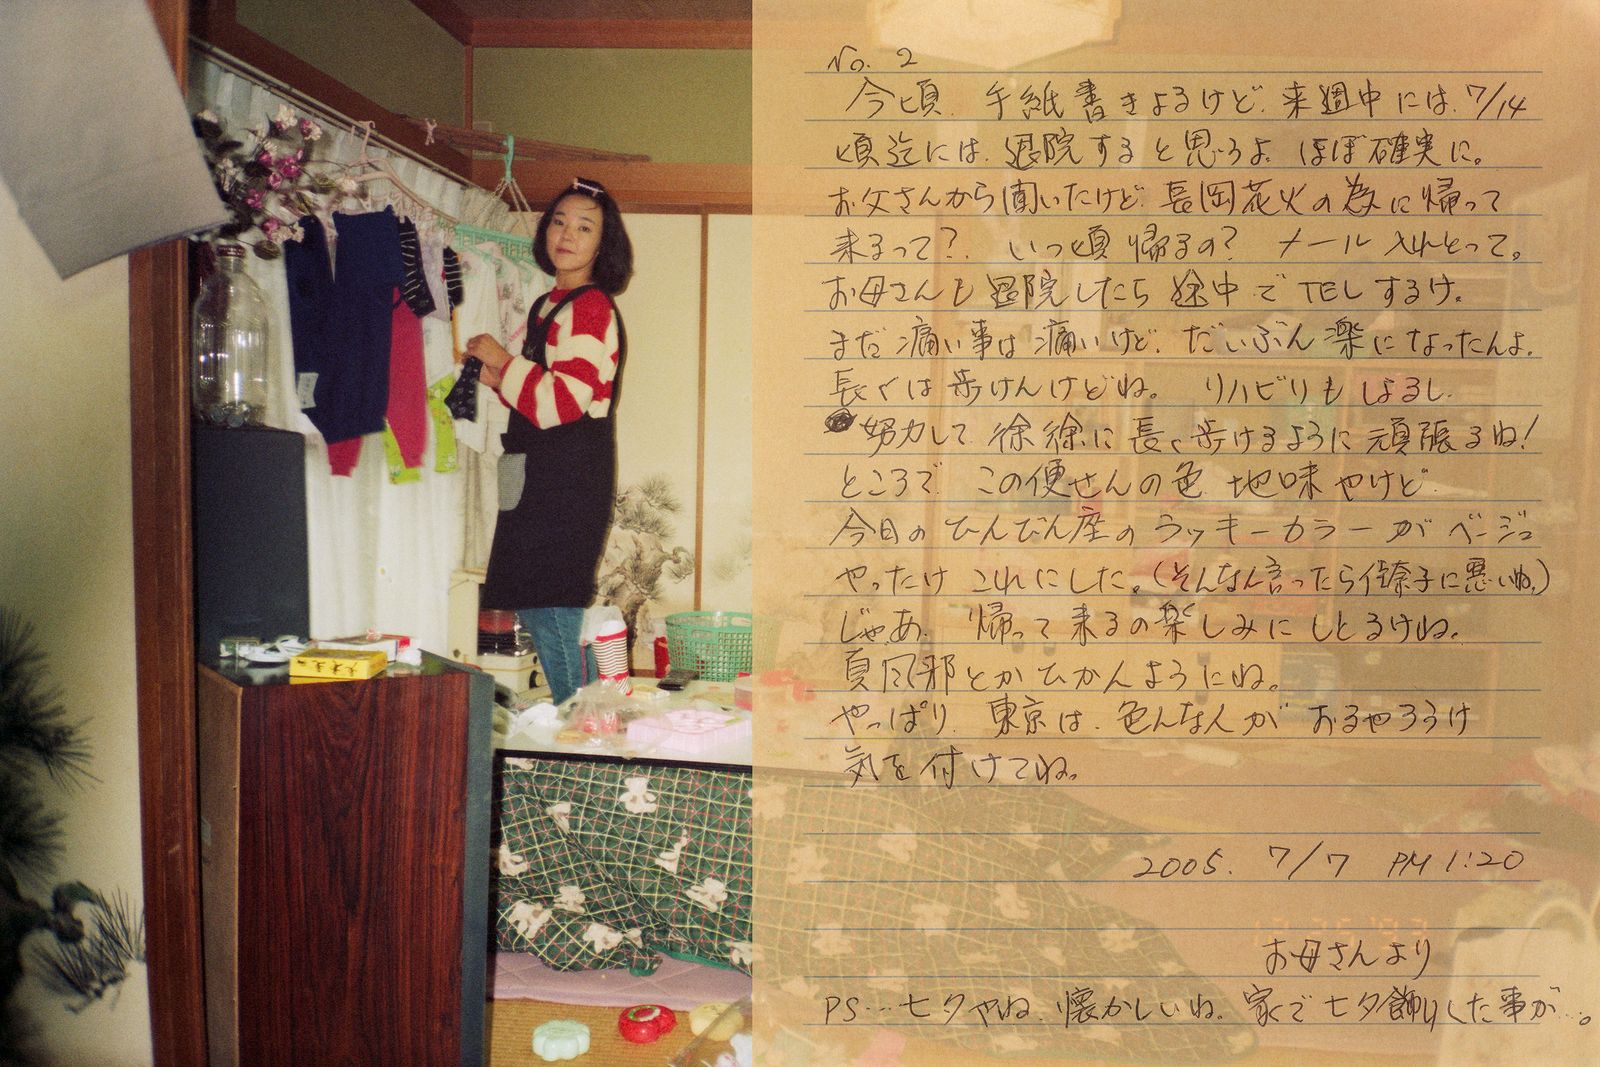 No. 2
今頃 手紙書きよるけど、来週中には、7/14
頃迄には、退院すると思うよ。ほぼ確実に。
お父さんから聞いたけど、長岡花火の為に帰って
来るって? いつ頃帰るの? メール入れとって。
お母さんも退院したら途中でTELするけ。
まだ痛い事は痛いけど、だいぶん楽になったんよ。
長くは歩けんけどね。 リハビリもしよるし、
努力して、徐徐に長く歩けるように頑張るね!
ところで、この便せんの色、地味やけど、
今日のてんびん座のラッキーカラーがベージュ
やったけ これにした。(そんなん言ったら 奈子に悪いね。)
じゃあ、帰って来るの楽しみにしとるけね。
夏風邪とかひかんようにね。
やっぱり、東京は、色んな人がおるやろうけ
気を付けてね。
2005. 7/7 PM 1:20
お母さんより
PS…七夕やね、懐かしいね。家で七夕飾りした事が…。